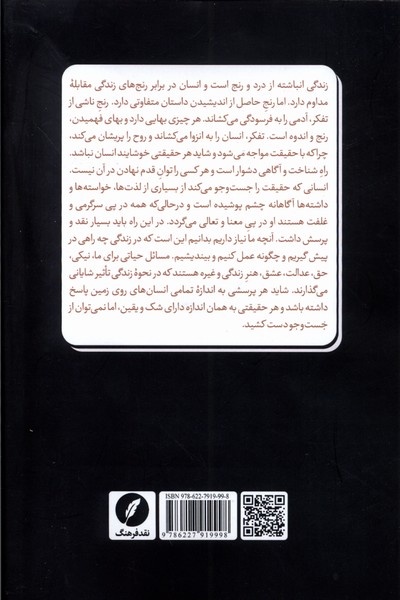 زندگی انباشته از درد و رنج است و انسان در برابر رنج‌های زندگی مقابلهٔ
مداوم دارد. اما رنج حاصل از اندیشیدن داستان متفاوتی دارد. رنج ناشی از
تفکر، آدمی را به فرسودگی می‌کشاند. هر چیزی بهایی دارد و بهای فهمیدن،
رنج و اندوه است. تفکر، انسان را به انزوا می‌کشاند و روح را پریشان می‌کند،
چراکه با حقیقت مواجه می‌شود و شاید هر حقیقتی خوشایند انسان نباشد.
راه شناخت و آگاهی دشوار است و هر کسی را توانِ قدم نهادن در آن نیست.
انسانی که حقیقت را جست‌وجو می‌کند از بسیاری از لذت‌ها، خواسته‌ها و
داشته‌ها آگاهانه چشم پوشیده است و درحالی‌که همه در پی سرگرمی و
غفلت هستند او در پیِ معنا و تعالی می‌گردد. در این راه باید بسیار نقد و
پرسش داشت. آنچه ما نیاز داریم بدانیم این است که در زندگی چه راهی در
پیش گیریم و چگونه عمل کنیم و بیندیشیم. مسائل حیاتی برای ما، نیکی،
حق، عدالت، عشق، هنرِ زندگی و غیره هستند که در نحوهٔ زندگی تأثیر شایانی
می‌گذارند. شاید هر پرسشی به اندازهٔ تمامی انسان‌های روی زمین پاسخ
داشته باشد و هر حقیقتی به همان اندازه دارای شک و یقین، اما نمی‌توان از
جَست‌وجو دست کشید.
ISBN 978-622-7919-99-8
9 786227 919998
نقدفرهنگ